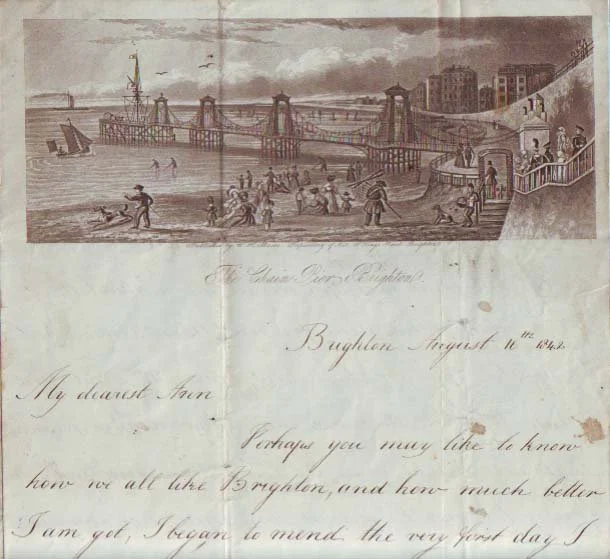 The Chain Pier Brighton.
Brighton August 11th 1842
My dearest Ann
Perhaps you may like to know
how we all like Brighton, and how much better
I am got, I began to mend the very first day I